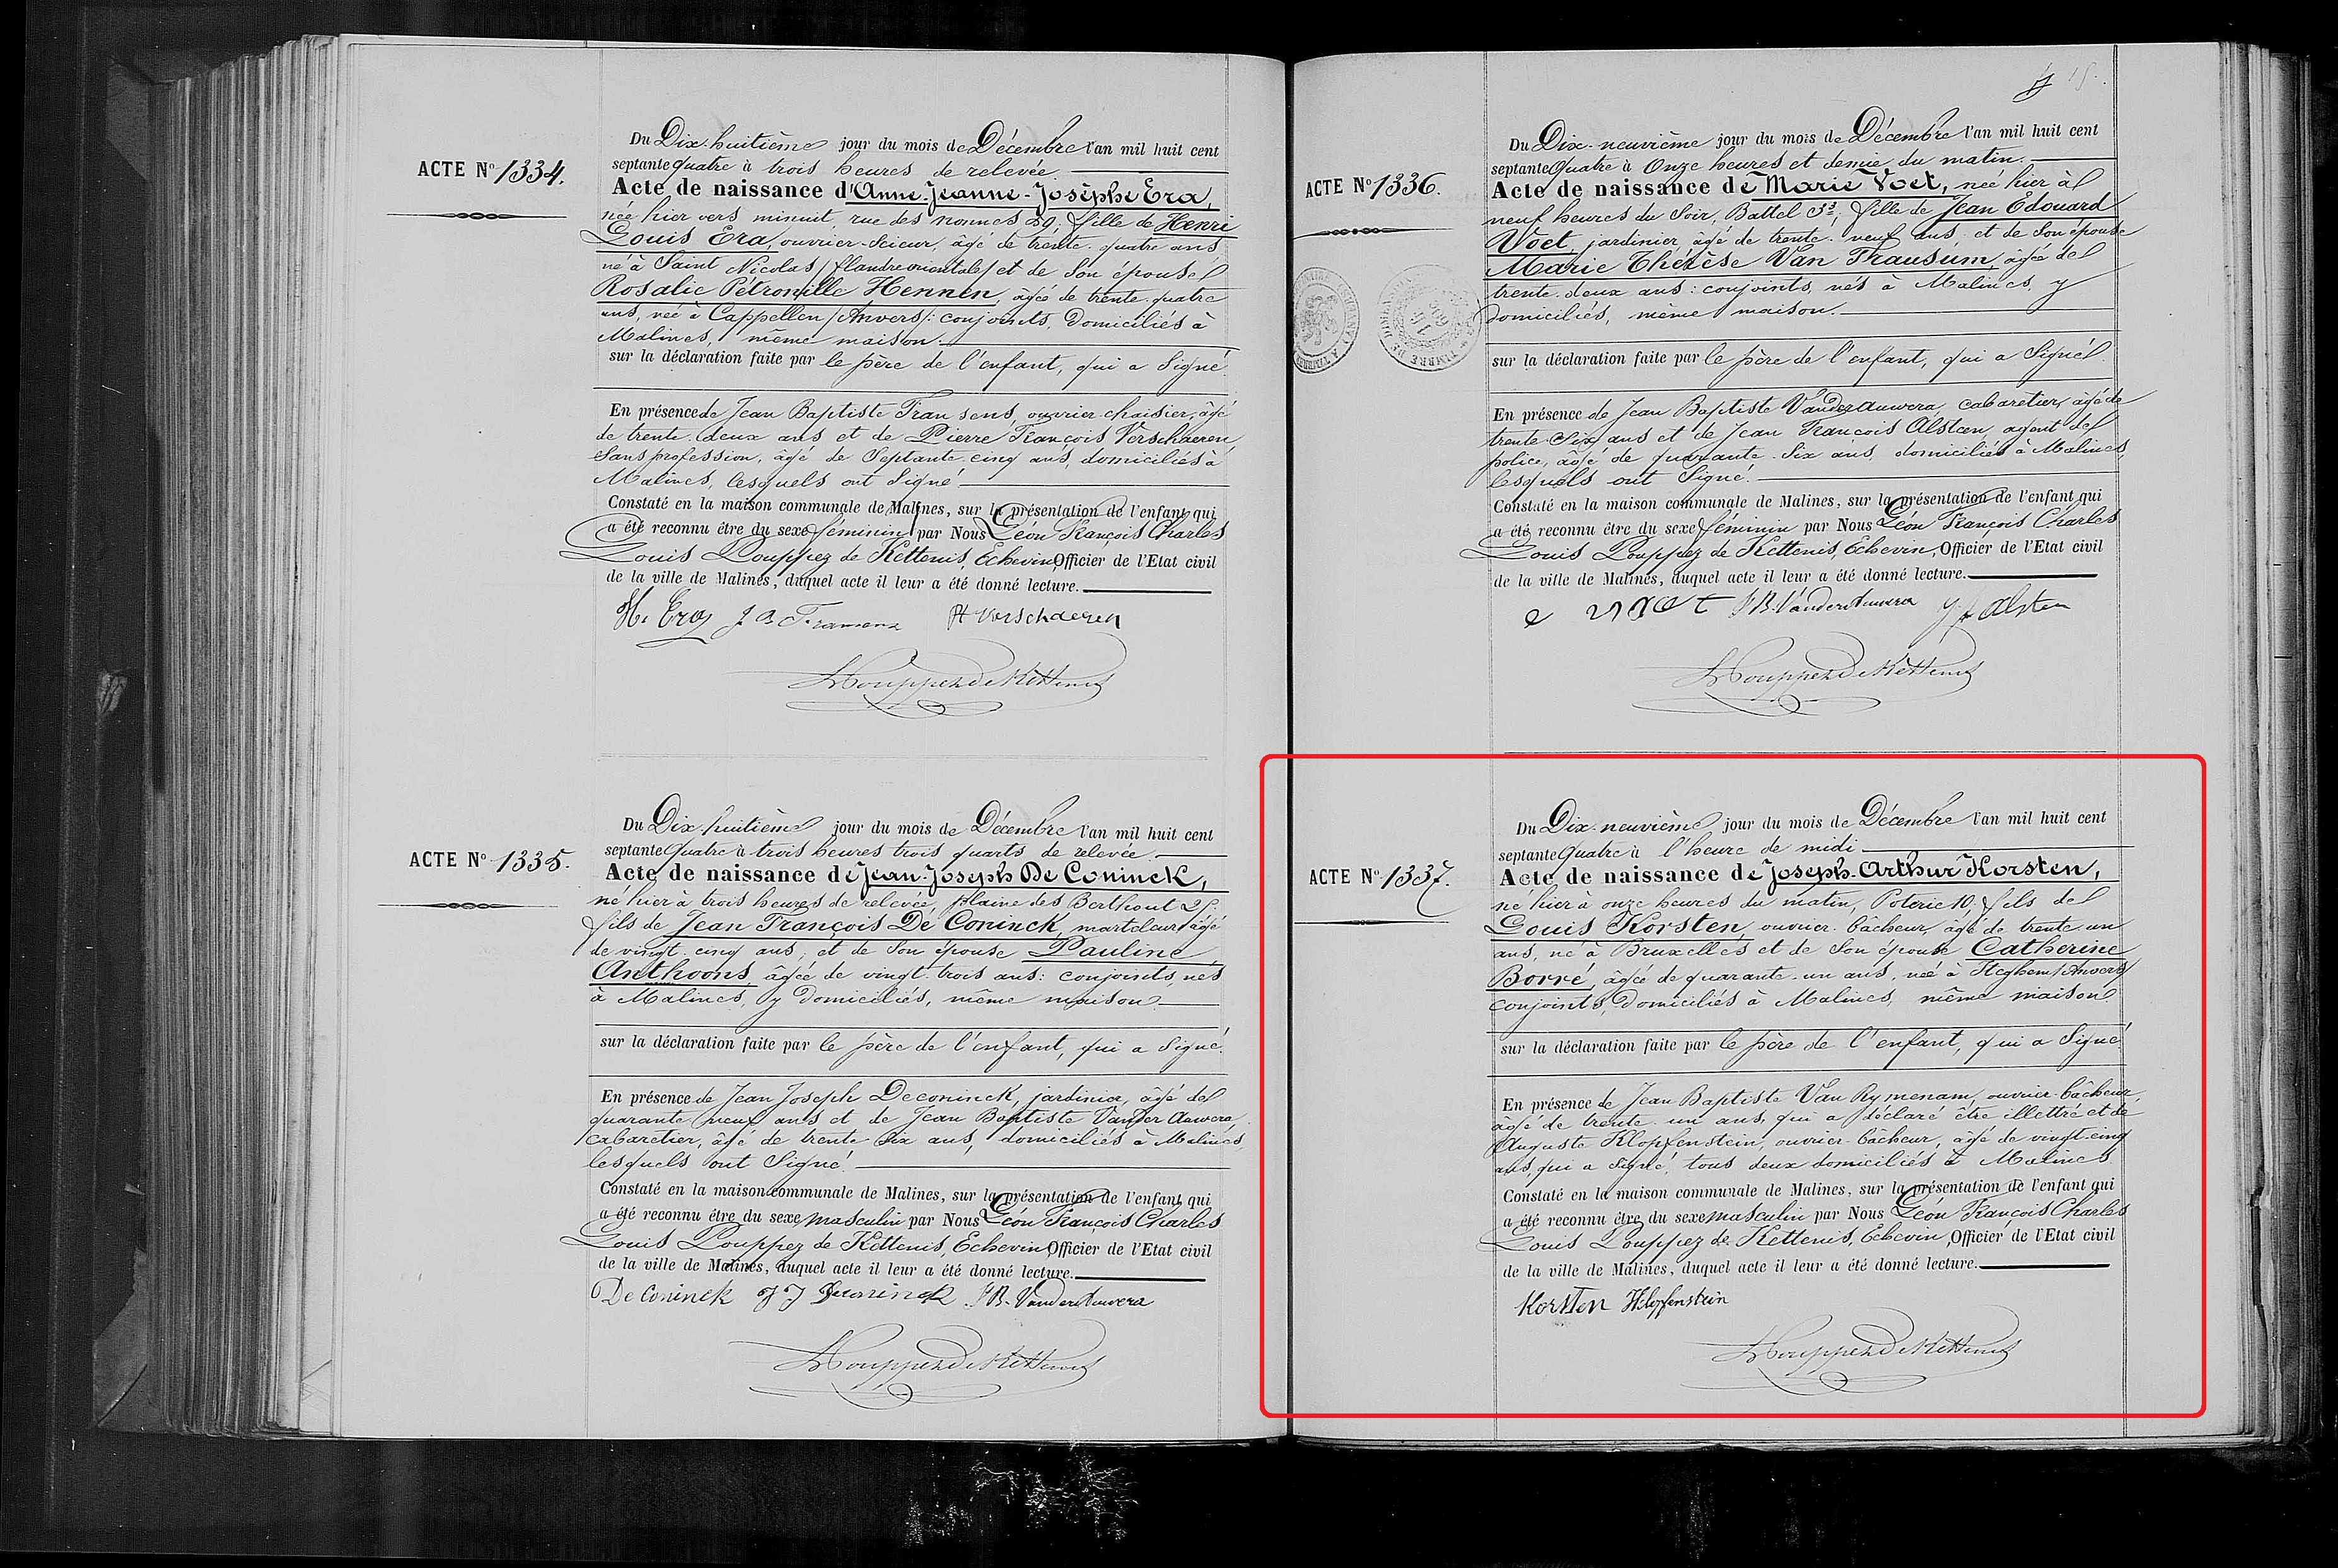 ACTE No 1334.
Du Dix-huitième jour du mois de Décembre l'an mil huit cent
septante Quatre à trois heures de relevée.
Acte de naissance d'Anne-Jeanne-Joséphe Era,
née hier vers minuit, rue des nonnes 29, fille de Henri
Louis Era, ouvrier-scieur, âgé de trente-quatre ans,
né à Saint Nicolas (flandre orientale) et de son épouse
Rosalie Pétronille Hennen, âgée de trente-quatre
ans, née à Cappellen (Anvers): conjoints, domiciliés à
Malines, même maison.
sur la déclaration faite par le père de l'enfant, qui a signé.
En présence de Jean Baptiste Fransens, ouvrier-chaisier, âgé
de trente-deux ans et de Pierre François Verschaeren,
sans profession, âgé de septante-cinq ans, domiciliés à
Malines, lesquels ont signé.
Constaté en la maison communale de Malines, sur la présentation de l'enfant qui
a été reconnu être du sexe féminin par Nous Léon François Charles
Louis Pouppez de Kettenis, Echevin, Officier de l'Etat civil
de la ville de Malines, duquel acte il leur a été donné lecture.
H. Era J B Fransens Pf Verschaeren
LPouppez de Kettenis
ACTE No 1335.
Du Dix-huitième jour du mois de Décembre l'an mil huit cent
septante Quatre à trois heures trois quarts de relevée.
Acte de naissance de Jean-Joseph De Coninck,
né hier à trois heures de relevée, plaine des Berthout 25,
fils de Jean François De Coninck, marteleur, âgé
de vingt-cinq ans, et de son épouse Pauline
Anthoons, âgée de vingt-trois ans: conjoints, nés
à Malines, y domiciliés, même maison.
sur la déclaration faite par le père de l'enfant, qui a signé.
En présence de Jean Joseph Deconinck, jardinier, âgé de
quarante-neuf ans et de Jean Baptiste Vander Auwera,
cabaretier, âgé de trente-six ans, domiciliés à Malines,
lesquels ont signé.
Constaté en la maison communale de Malines, sur la présentation de l'enfant qui
a été reconnu être du sexe masculin par Nous Léon François Charles
Louis Pouppez de Kettenis, Echevin, Officier de l'Etat civil
de la ville de Malines, duquel acte il leur a été donné lecture.
De Coninck J J Deconinck J B. Vander Auwera
LPouppez de Kettenis
ACTE No 1336.
Du Dix-neuvième jour du mois de Décembre l'an mil huit cent
septante Quatre à Onze heures et demie du matin.
Acte de naissance de Marie Voet, née hier à
neuf heures du soir, Battel 33, fille de Jean Edouard
Voet, jardinier, âgé de trente-neuf ans, et de son épouse
Marie Thérèse Van Frausum, âgée de
trente-deux ans: conjoints, nés à Malines, y
domiciliés, même maison.
sur la déclaration faite par le père de l'enfant, qui a signé
En présence de Jean Baptiste Vander Auwera, cabaretier, âgé de
trente-six ans et de Jean François Alsteen, agent de
police, âgé de quarante-six ans, domiciliés à Malines,
lesquels ont signé.
Constaté en la maison communale de Malines, sur la présentation de l'enfant qui
a été reconnu être du sexe féminin par Nous Léon François Charles
Louis Pouppez de Kettenis, Echevin, Officier de l'Etat civil
de la ville de Malines, duquel acte il leur a été donné lecture.
e voet J B. Vander Auwera J f Alsten
LPouppez de Kettenis
ACTE No 1337.
Du Dix-neuvième jour du mois de Décembre l'an mil huit cent
septante Quatre à l'heure de midi
Acte de naissance de Joseph-Arthur Korsten,
né hier à onze heures du matin, Poterie 10, fils de
Louis Korsten, ouvrier-bâcheur, âgé de trente-un
ans, né à Bruxelles et de son épouse Catherine
Borré, âgée de quarante-un ans, née à Iteghem (Anvers)
conjoints, domiciliés à Malines, même maison.
sur la déclaration faite par le père de l'enfant, qui a signé.
En présence de Jean Baptiste Van Rymenam, ouvrier-bâcheur,
âgé de trente-un ans, qui a déclaré être illettré et de
Auguste Klopfenstein, ouvrier-bâcheur, âgé de vingt-cinq
ans, qui a signé, tous deux domiciliés à Malines
Constaté en la maison communale de Malines, sur la présentation de l'enfant qui
a été reconnu être du sexe masculin par Nous Léon François Charles
Louis Pouppez de Kettenis, Echevin, Officier de l'Etat civil
de la ville de Malines, duquel acte il leur a été donné lecture.
Korsten Klopfenstein
LPouppez de Kettenis